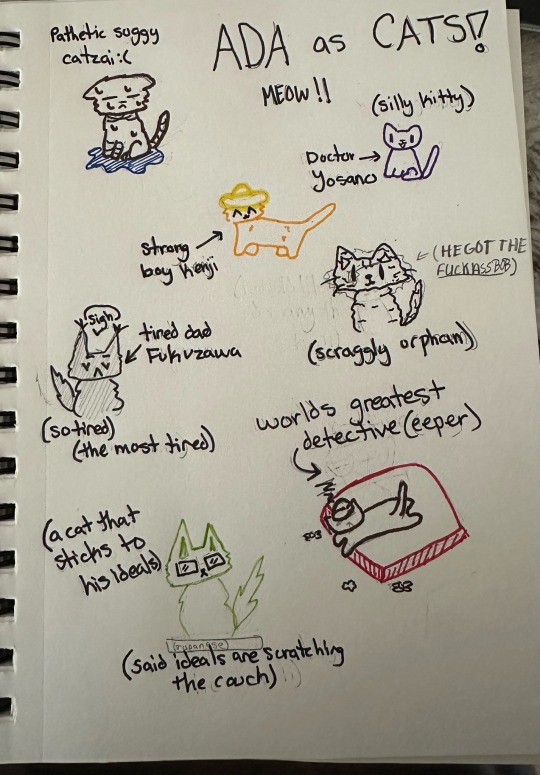 Pathetic suggy
catzai:(
ADA as CATS!?
MEOW!!
(silly kitty)
Doctor
Yosano
strong
boy Kenji
(HE GOT THE
FUCKASS BOB)
(scraggly orphan)
sigh
tired dad
Fukuzawa
(so tired)
(the most tired)
worlds greatest
detective (eeper)
(a cat that
sticks to
his ideals)
(said ideals are scratching
the couch)